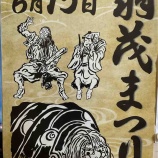 羽茂まつり
6月15日